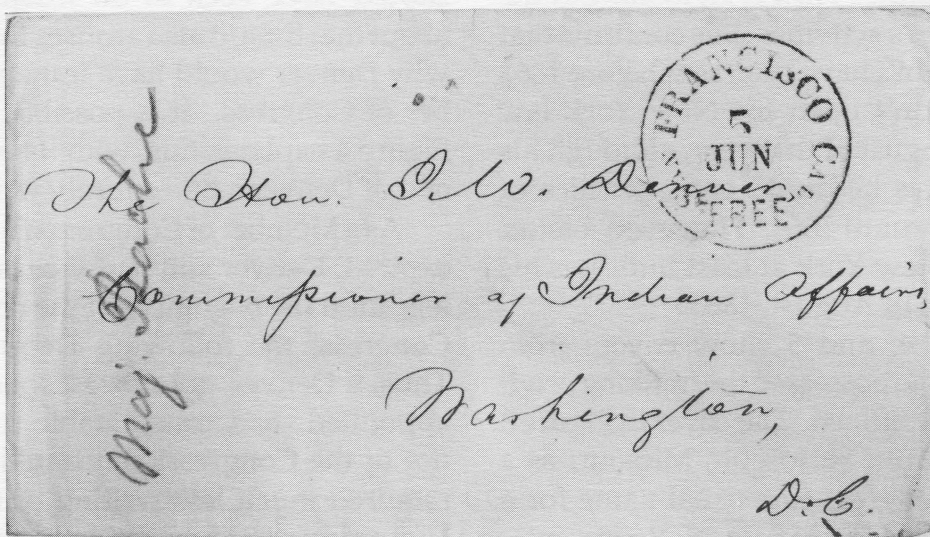 FRANCISCO CAL
5
JUN
FREE
The Hon. J. W. Denver,
Commissioner of Indian Affairs,
Washington,
D. C.
Maj.